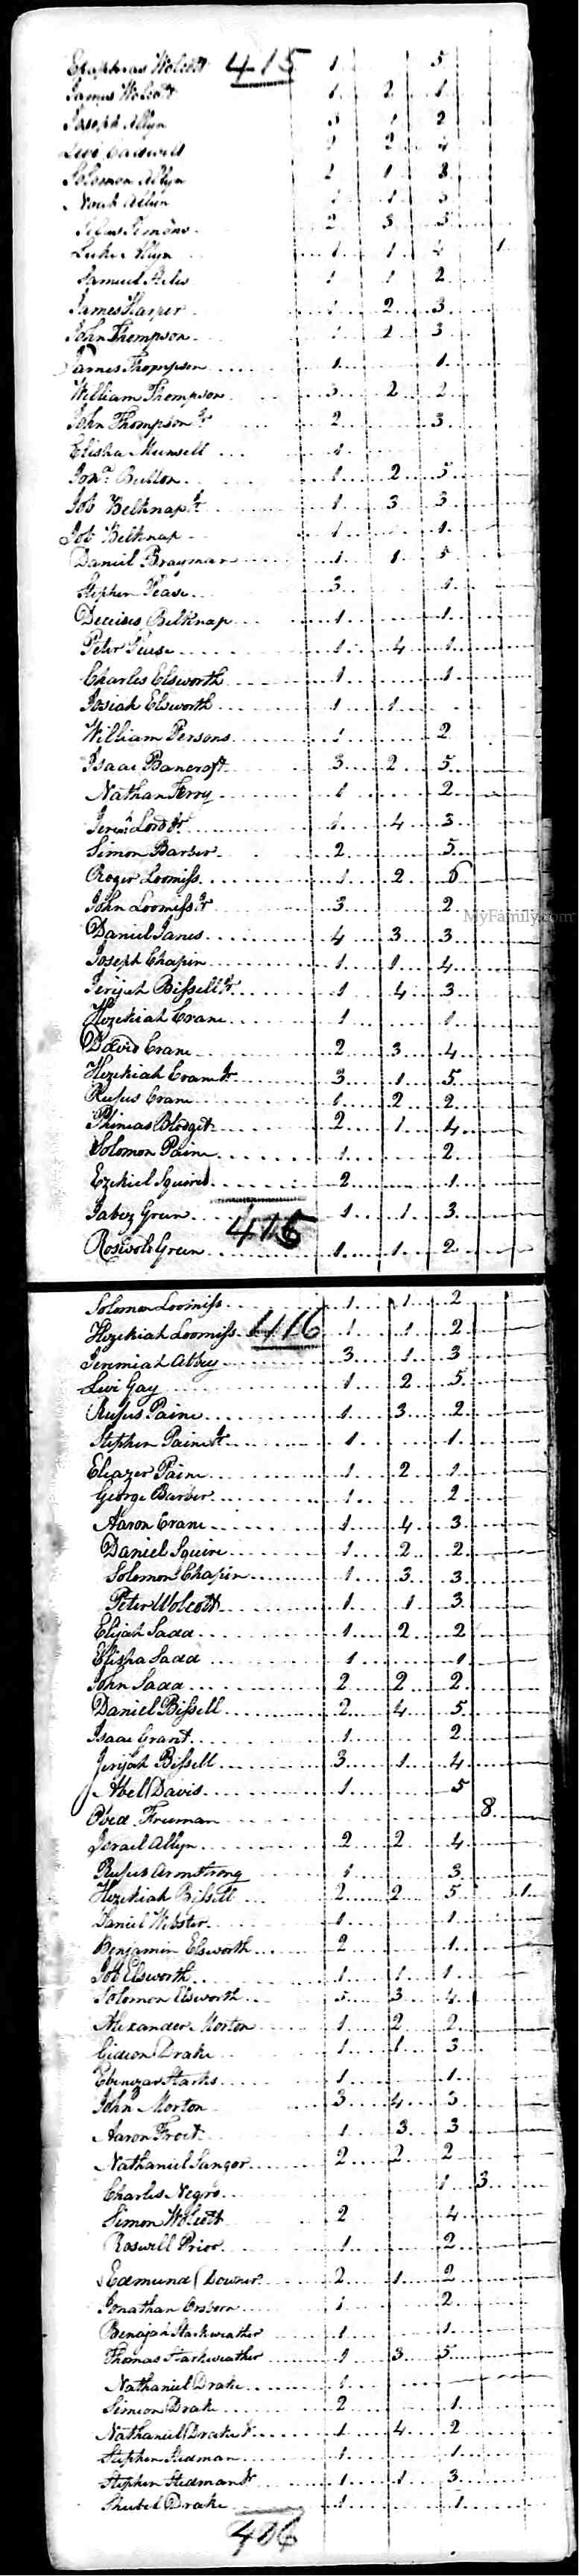 Epaphras Wolcott 415 1 5
James Wolcott 1 2 1
Joseph Allyn 3 1 2
Levi 2 2 4
Solomon Allyn 2 1 3
Noah Allyn 1 1 3
Simons 2 3 5
Luke Allyn 1 1 4 1
Samuel 1 1 2
James Harper 1 2 3
John Thompson 1 2 3
James Thompson 1 1
William Thompson 3 2 2
John Thompson Jr 2 3
Elisha Munsell 1
Jona. Bullon 1 2 5
Job Belknap Jr 1 3 3
Job Belknap 1 1
Daniel Brayman 1 1 5
Stephen Pease 3 1
Belknap 1 1
Peter Pease 1 4 1
Charles Elsworth 1 1
Josiah Elsworth 1 1
William Persons 1 2
Isaac Bancroft 3 2 5
Nathan Terry 1 2
Jerem. Lord Jr 1 4 3
Simon Barber 2 5
Roger Loomiss 1 2
John Loomiss Jr 3 2
MyFamily.com
Daniel Janes 4 3 3
Joseph Chapin 1 1 4
Jerijah Bissell Jr 1 4 3
Hezekiah Crane 1 1
David Crane 2 3 4
Hezekiah Crane Jr 3 1 5
Rufus Crane 1 2 2
Phineas Blodget 2 1 4
Solomon Paine 1 2
Ezekiel Squires 2 1
Jabez Green 1 1 3
415
Roswold Green 1 1 2
Solomon Loomiss 1 1 2
Hezekiah Loomiss 416 1 1 2
Jeremiah Abbey 3 1 3
Levi Gay 1 2 5
Rufus Paine 1 3 2
Stephen Paine Jr 1 1
Eleazer Paine 1 2 1
George Barber 1 2
Aaron Crane 1 4 3
Daniel Squire 1 2 2
Solomon Chapin 1 3 3
Peter Wolcott 1 1 3
Elijah Sadd 1 2 2
Elisha Sadd 1 1
John Sadd 2 2 2
Daniel Bissell 2 4 5
Isaac Grant 1 2
Jerijah Bissell 3 1 4
Abel Davis 1 5
Obed Freeman 8
Israel Allyn 2 2 4
Rufus Armstrong 1 3
Hezekiah Bissell 2 2 5 1
Daniel Webster 1 1
Benjamin Elsworth 2 1
Job Elsworth 1 1 1
Solomon Elsworth 5 3 4
Alexander Morton 1 2 2
Gideon Drake 1 1 3
Ebenezer Starks 1 1
John Morton 3 4 3
Aaron Frost 1 3 3
Nathaniel Sanger 2 2 2
Charles Negro 1 3
Simon Wolcott 2 4
Roswell Prior 1 2
Edmund Downer 2 1 2
Jonathan Orsborn 1 2
Benajah Starkweather 1 1
Thomas Starkweather 1 3 5
Nathaniel Drake 1
Simeon Drake 2 1
Nathaniel Drake Jr 1 4 2
Stephen Stedman 1 1
Stephen Stedman Jr 1 1 3
Shubel Drake 1 1
406